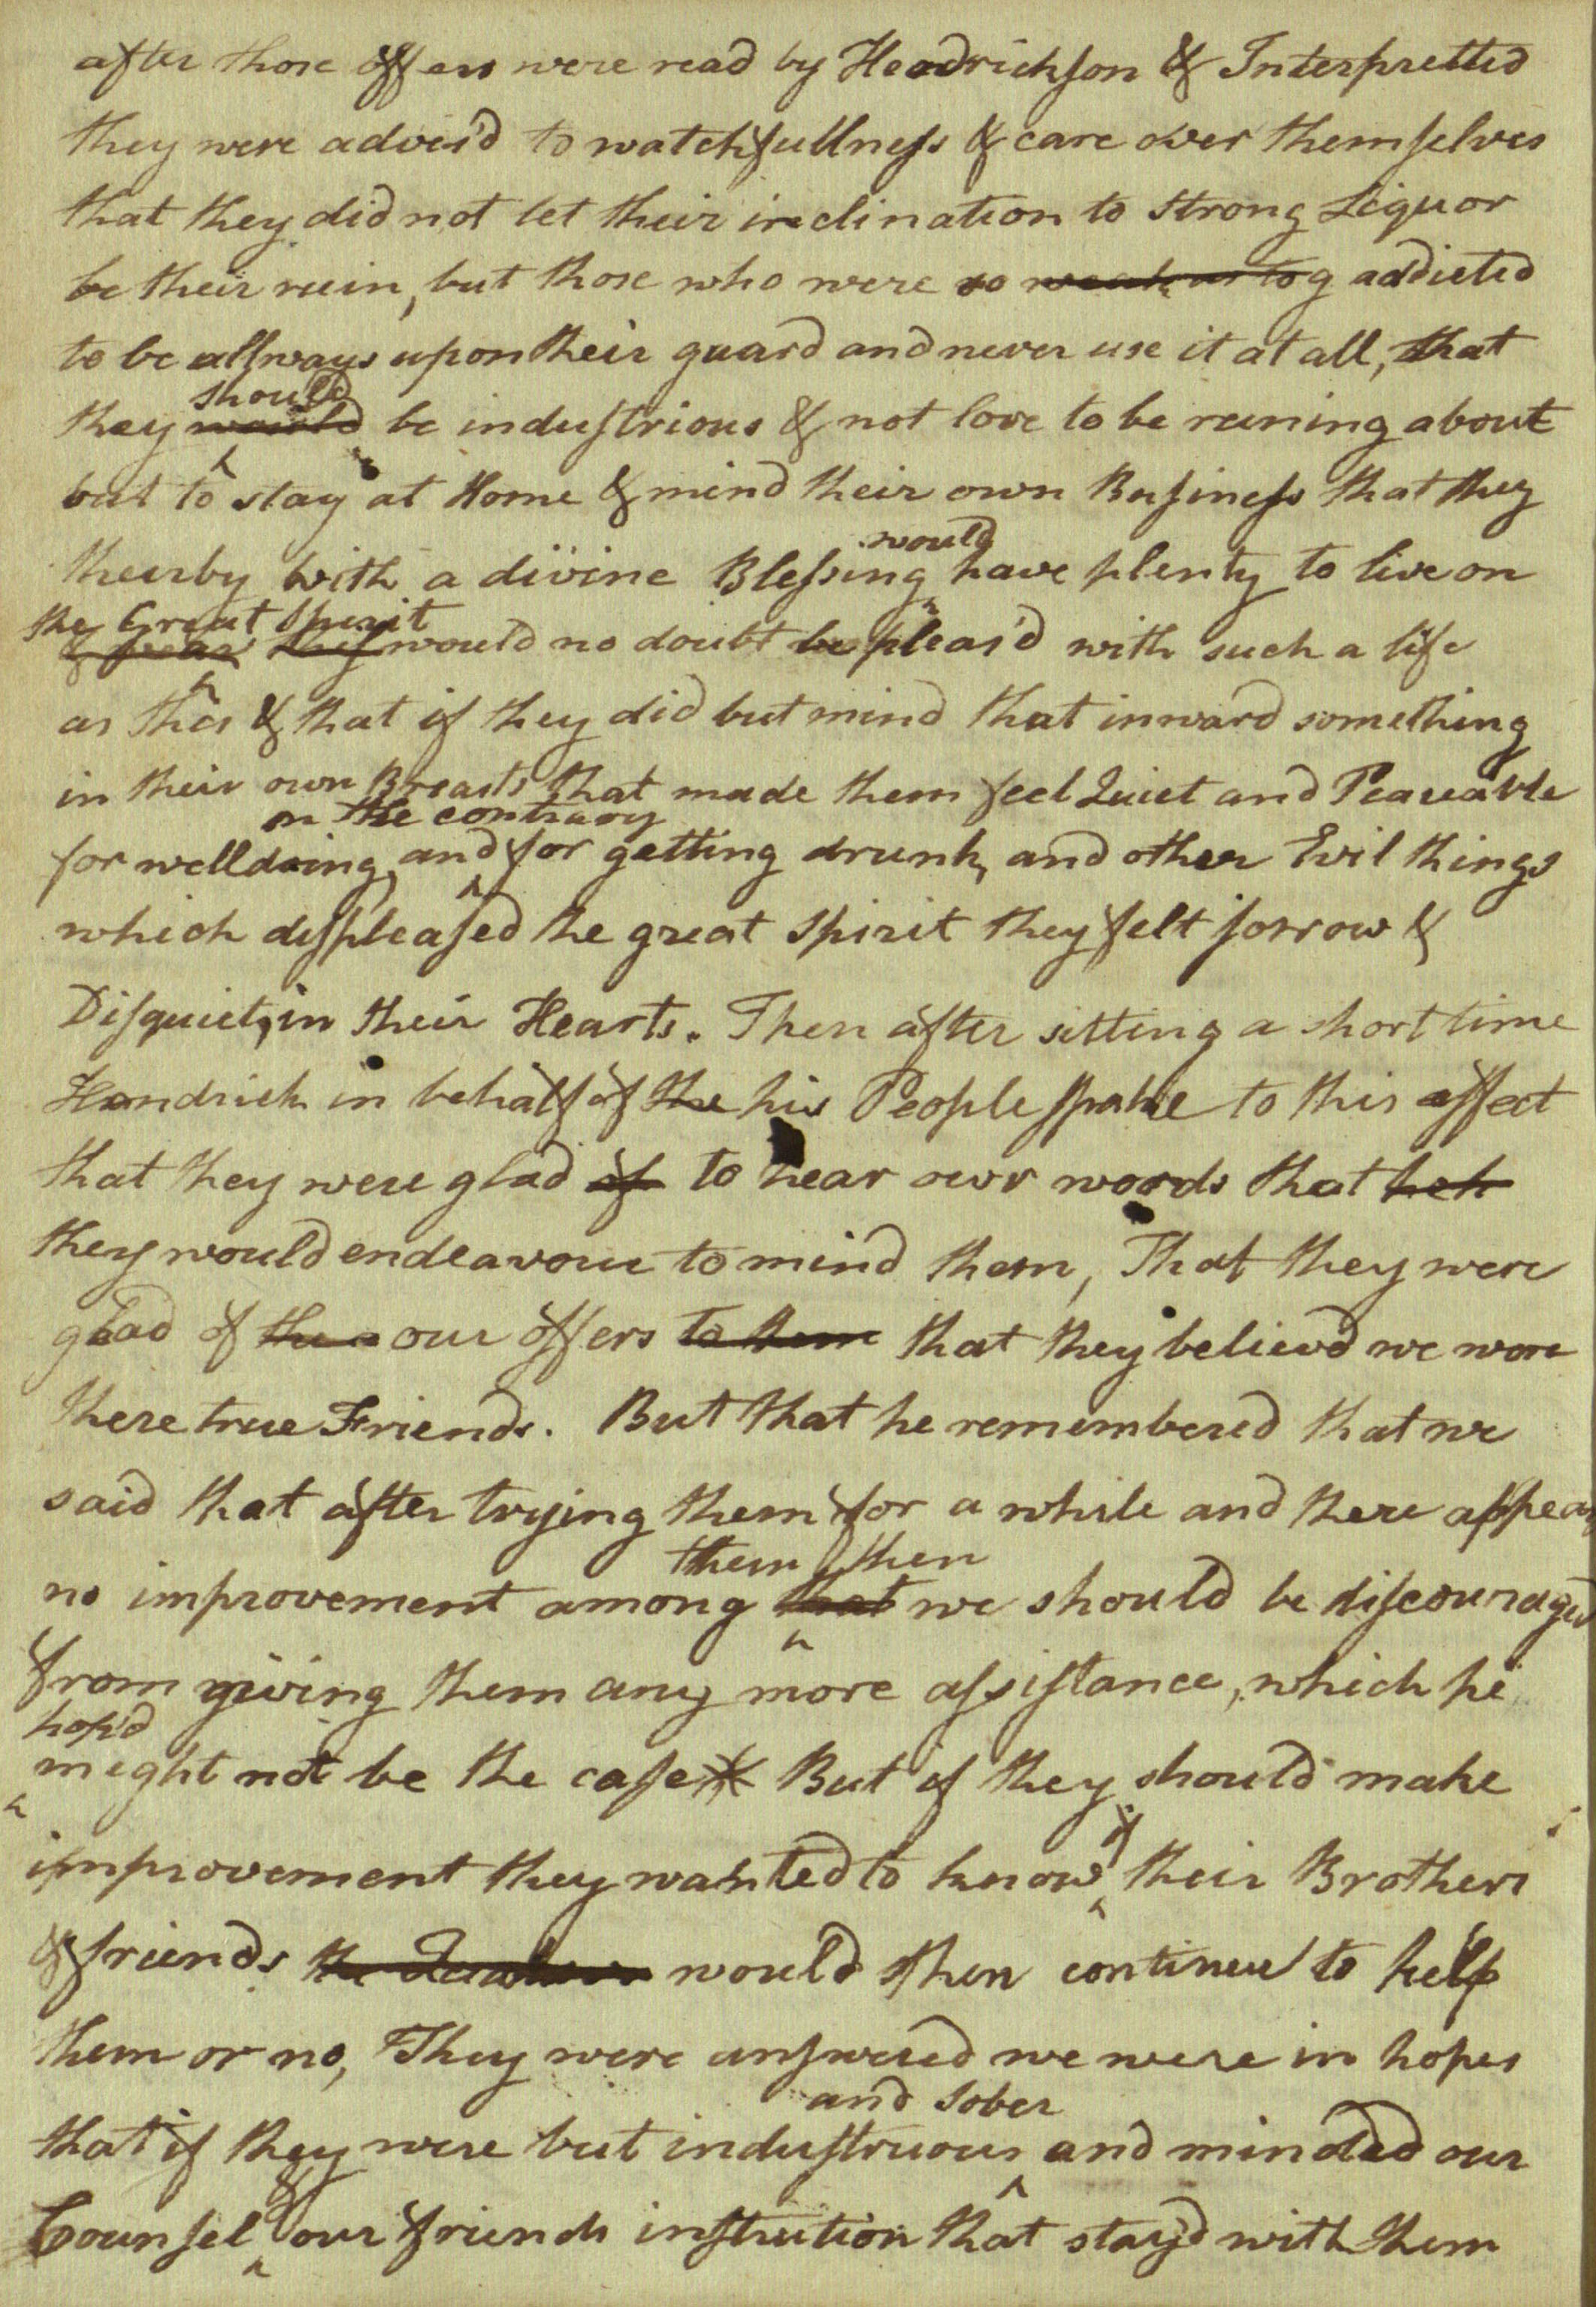 after those offers were read by Hendrickson & Interpretted
they were advis'd to watchfullness & care over themselves
that they did not let their inclination to strong Liquor
be their ruin, but those who were so weak as to g addicted
to be allways upon their guard and never use it at all, that
should
they would be industrious & not love to be runing about
but to stay at Home & mind their own Business that they
would
therby with a divine Blessing have plenty to live on
the Great Spirit
& they would no doubt be pleas'd with such a life
as this & that if they did but mind that inward something
in their own Breasts that made them feel Quiet and Peaceable
on the contrary
for welldoing and for getting drunk, and other Evil things
which displeased the great Spirit they felt sorrow &
Disquiet, in their Hearts. Then after sitting a short time
Hendrick in behalf of the his People spake to this effect
that they were glad of to hear our words that heh
they would endeavour to mind them, That they were
glad of the our offers to them that they believd we were
there true Friends. But that he remembered that we
said that after trying them for a while and there appear
them then
no improvement among that we should be discouraged
from giving them any more assistance, which he
hop'd
might not be the case But if they should make
if
improvement they wanted to know their Brothers
& friends the Quakers would then continue to help
them or no, They were answered we were in hopes
and sober
that if they were but industruous and minded our
&
Counsel our friends instrution that stay'd with them